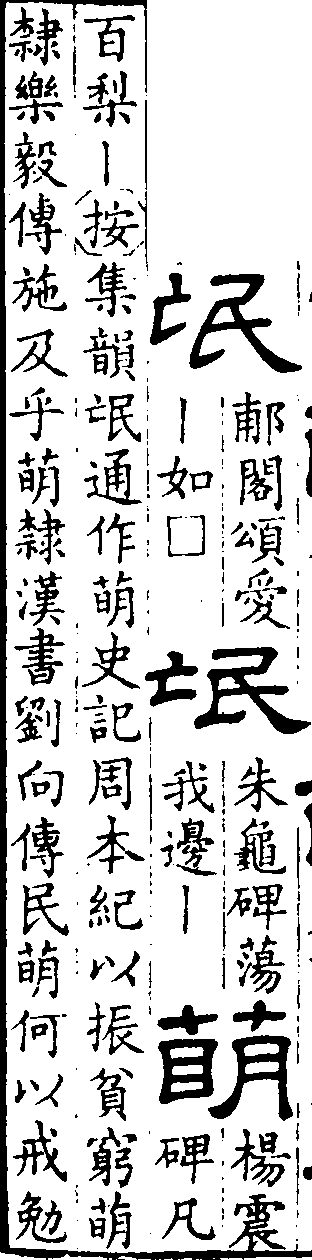 氓郙閣頌愛丨如□氓朱龜碑蕩我邊丨萌楊震碑凡
百梨丨按集韻氓通作萌史記周本紀以振貧窮萌
隸樂毅傳施及乎萌隸漢書劉向傳民萌何以戒勉